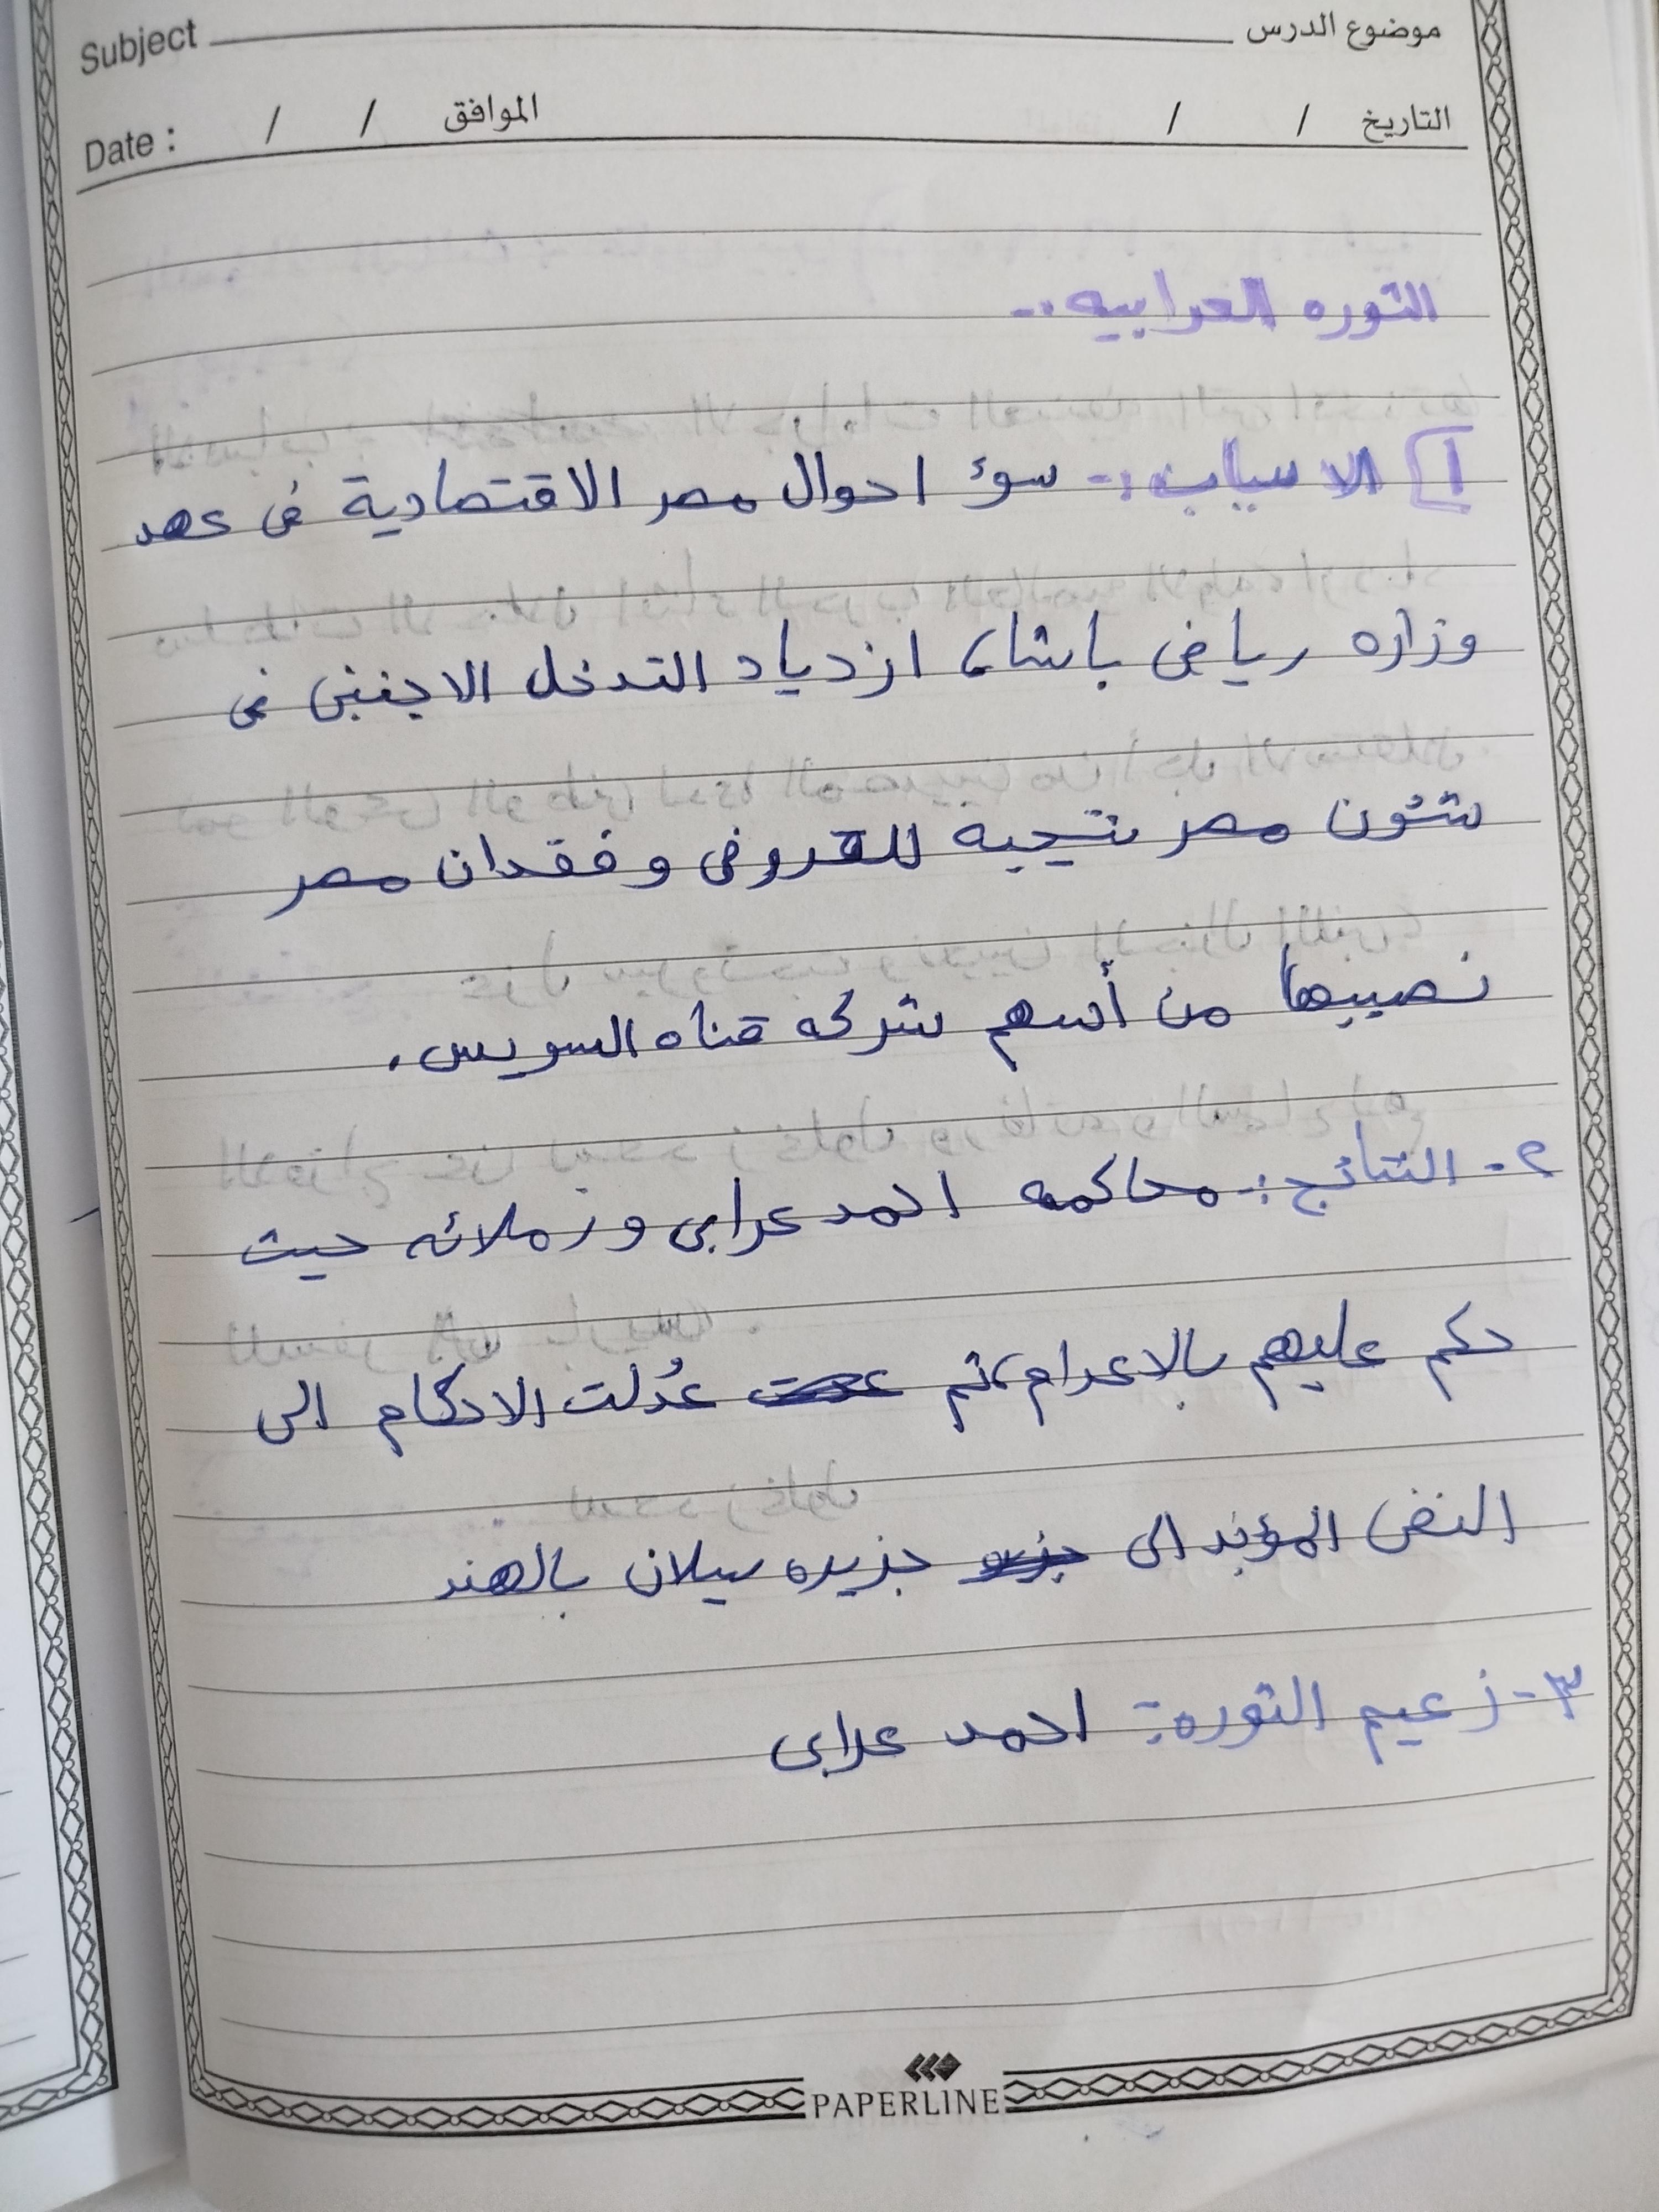 Subject موضوع الدرس
Date : / / الموافق / / التاريخ
الثوره العرابيه :-
1 الاسباب :- سوؤ احوال مصر الاقتصادية فى عهد
وزاره رياض باشا، ازدياد التدخل الاجنبى فى
شئون مصر نتيجه للقروض وفقدان مصر
نصيبها من أسهم شركه قناه السويس.
٢- النتائج :- محاكمه احمد عرابى وزملائه حيث
حكم عليهم بالاعدام، ثم عُدلت الاحكام الى
النفى المؤبد الى جزيره سيلان بالهند
٣- زعيم الثوره :- احمد عرابى
PAPERLINE